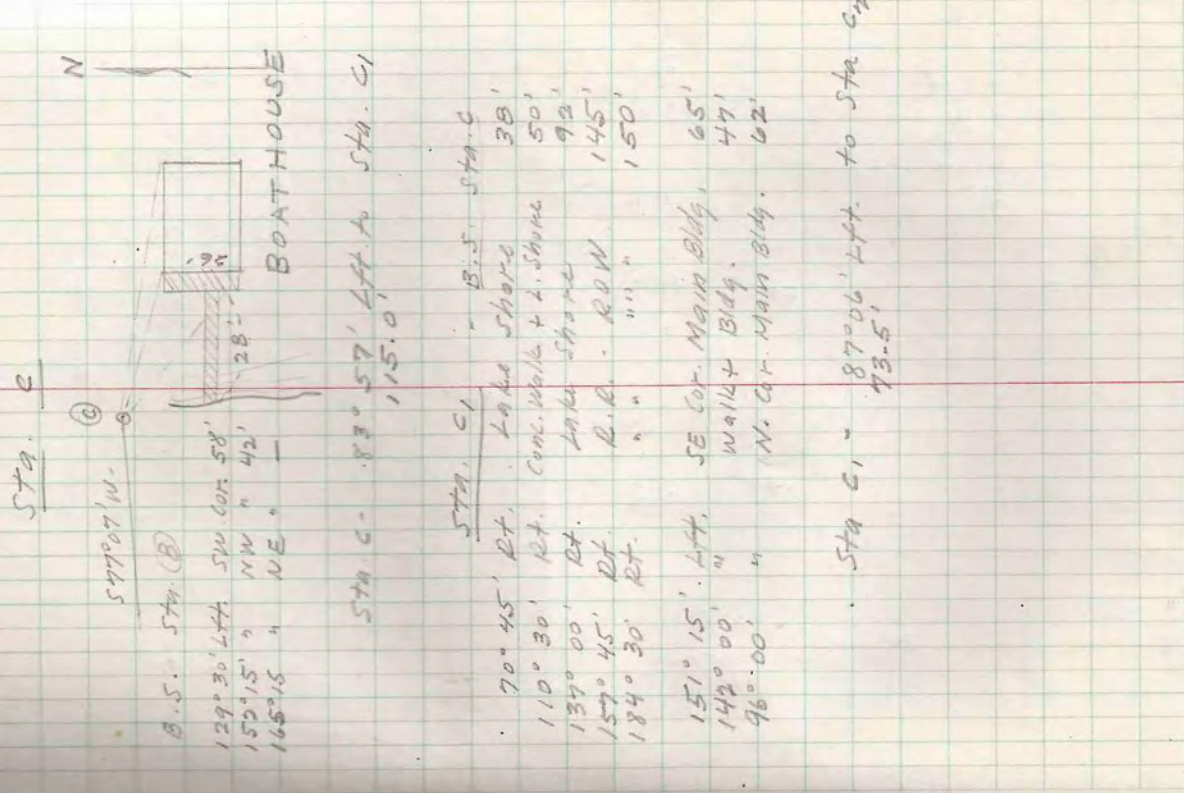 Sta. C
N
S77°07'W.
C
B.S. Sta. B
129° 30' Lft. SW. Cor. 58'
152° 15' " NW " 42'
165° 15 " NE " —
28'
26'
BOATHOUSE
Sta. C - 83° 57' Lft. to Sta. C1
115.0'
Sta. C1 - B.S. Sta. C
70° 45' Rt. Lake Shore 38'
110° 30' Rt. Conc. Walk + L. Shore 50'
137° 00' Rt. Lake Shore 92'
157° 45' Rt. R.R. ROW 145'
184° 30' Rt. " " " " 150'
151° 15' Lft. SE Cor. Main Bldg. 65'
142° 00' " Walk + Bldg. 47'
96° 00' " N. Cor. Main Bldg. 62'
Sta C1 - 87° 06' Lft. to Sta
73.5'